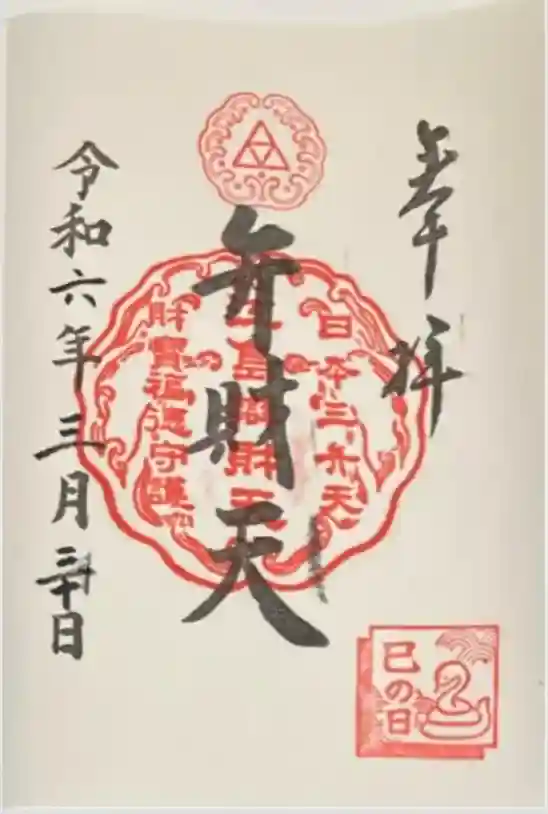 奉拝
日本三弁天
江島辨財天
財寶福徳守護
弁財天
令和六年三月三十日
巳の日